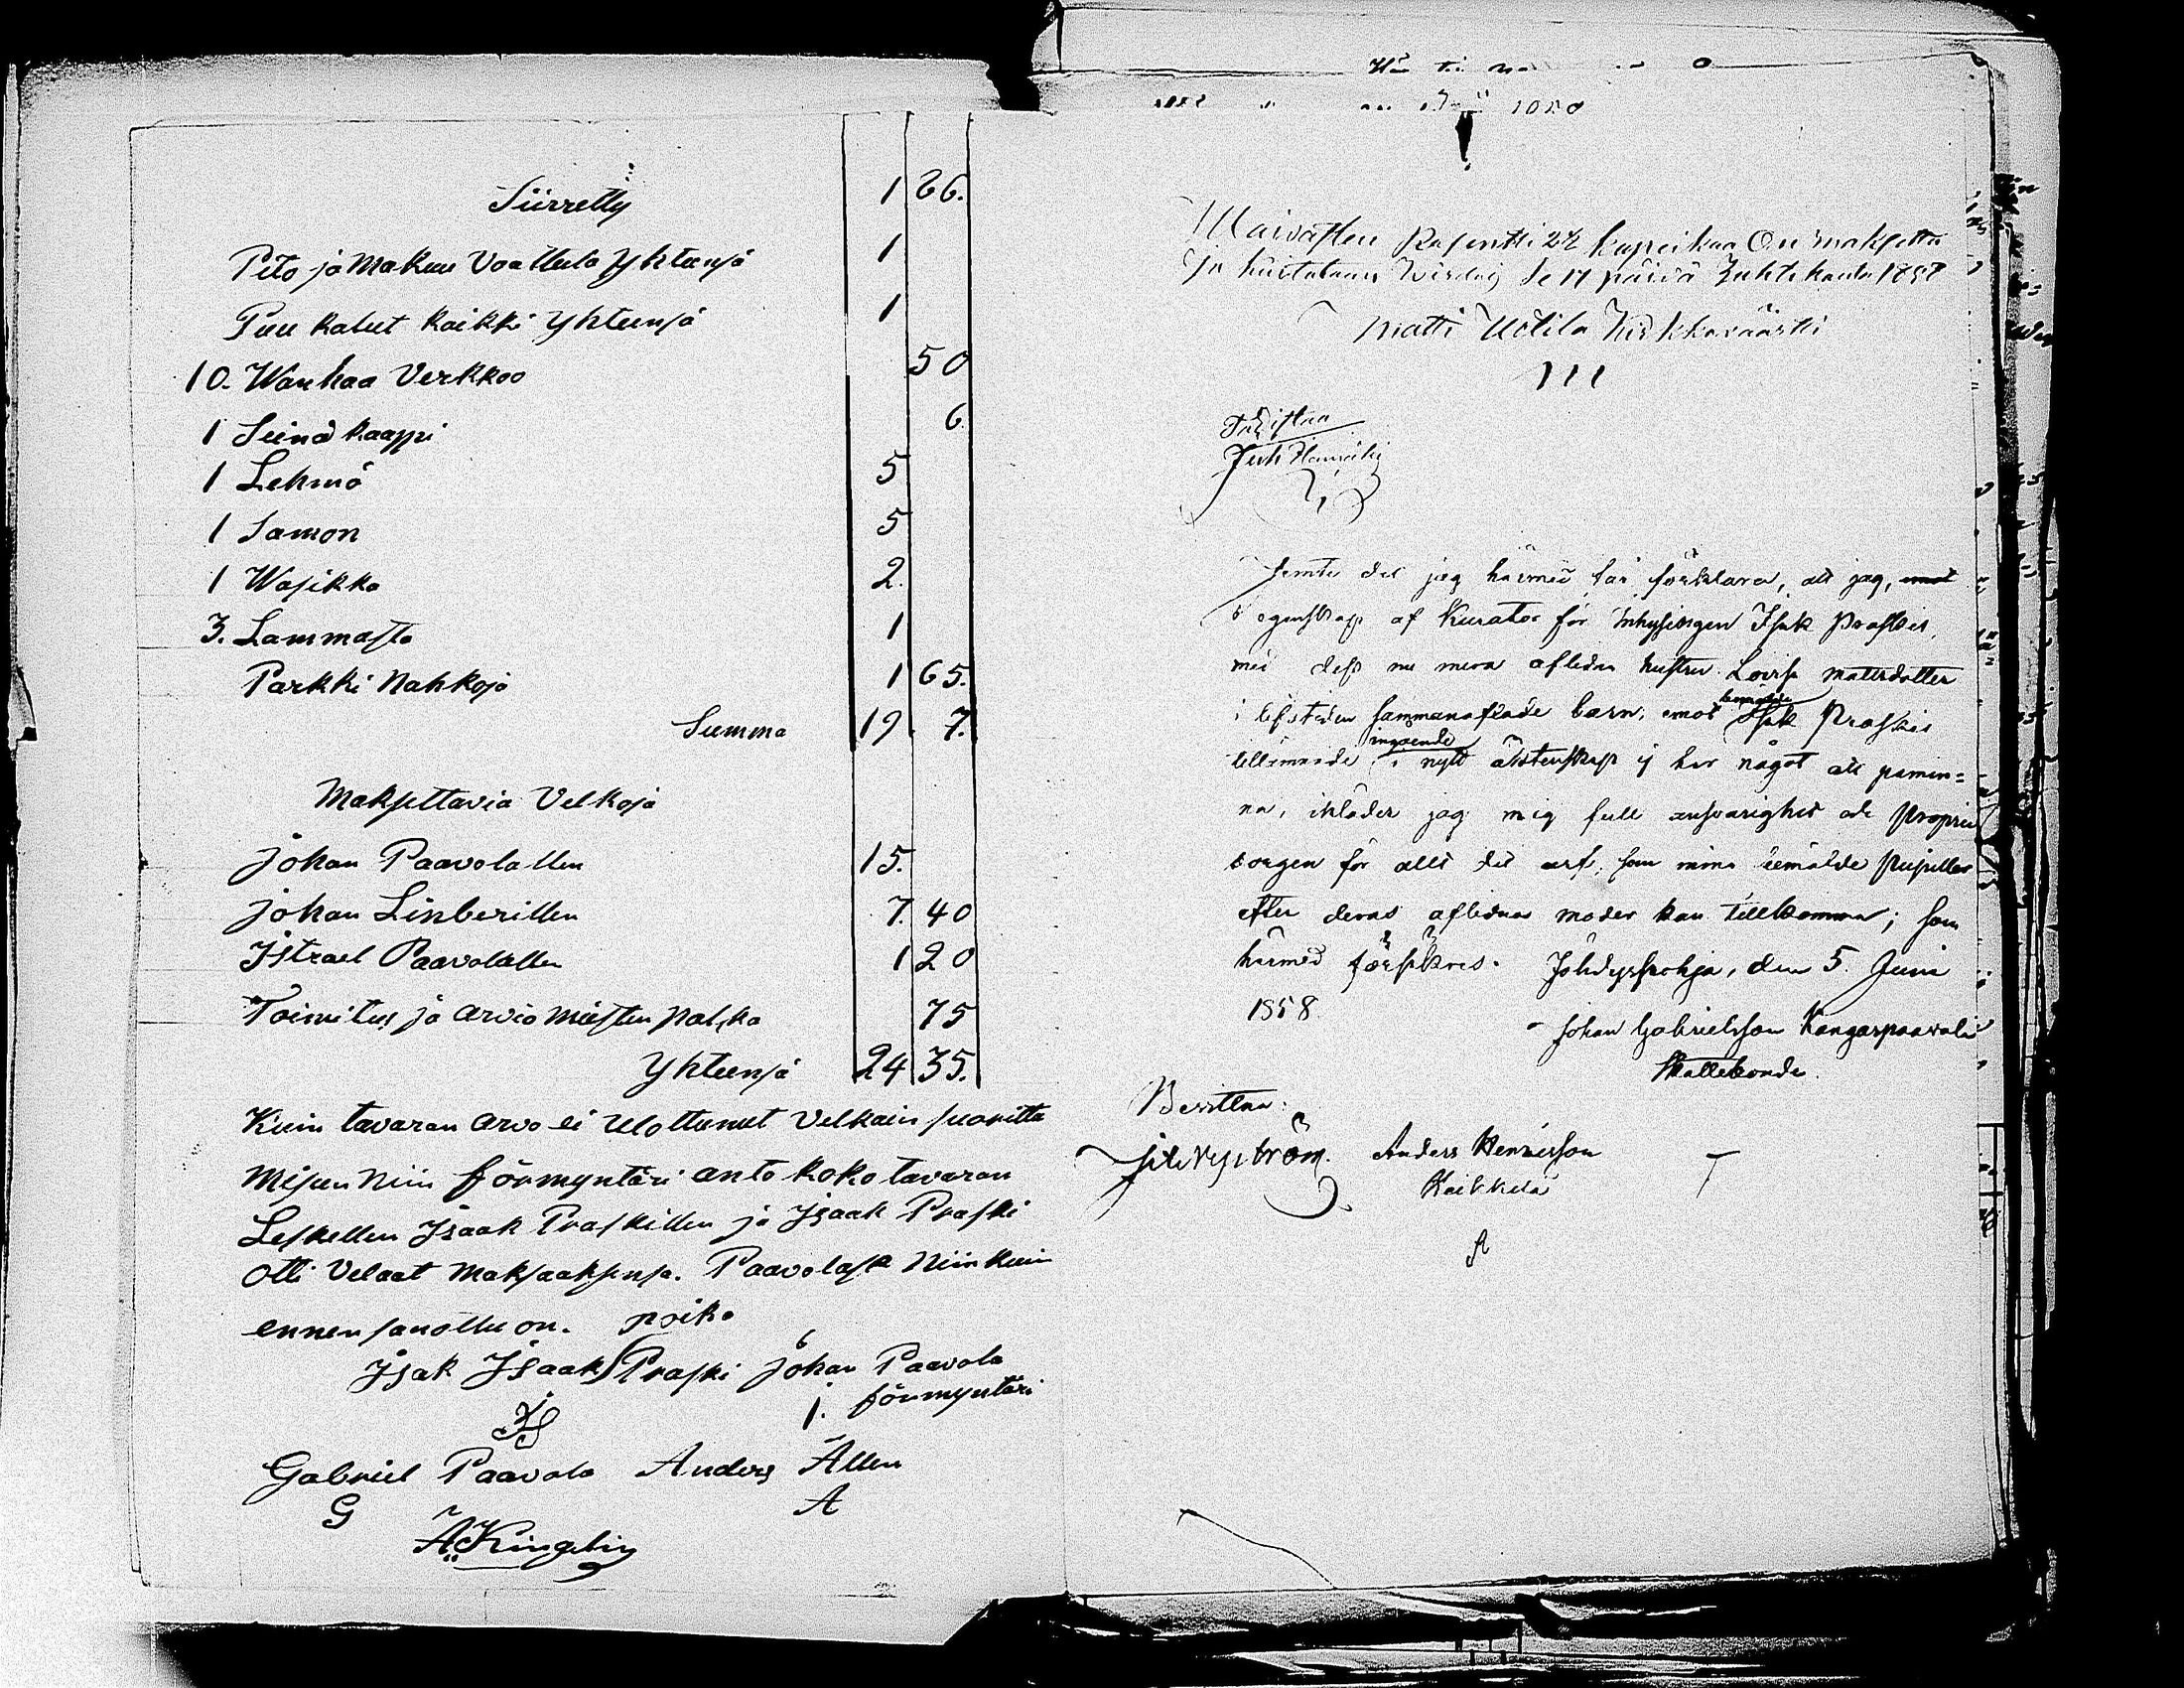 Siirretty 1 66.
Pito ja Makuu Vaatteita Yhteensä 1
Puu kalut kaikki Yhteensä 1
10. Wanhaa Verkkoo 50
1 Seinä kaappi 6.
1 Lehmä 5
1 Samon 5
1 Wasikka 2.
3. Lammasta 1
Parkki Nahkoja 1 65.
Summa 19 7.
Maksettavia Velkoja
Johan Paavolallen 15.
Johan Linberillen 7. 40
Istrael Paavolallen 1 20
Toimitus ja arvio miesten palkka 75
Yhteensä 24 35.
Kuin tavaran arvo ei ulottunut Velkain suoritta
miseen Niin förmyntäri anto koko tavaran
Leskellen Isaak Praskillen ja Isaak Praski
Otti Velaat Maksaaksensa. Paavolasta Niinkuin
ennen sanottu on. poika
Isak Isaak Praski Johan Paavola
1. förmyntäri
Gabriel Paavola Anders Allen
G A
Ä. Kingelin
1850
Waivasten Prosentti 24 kopeikaa On maksettu
ja kuitataan Se 17 päivä Huhtikuuta 1858
Matti Uotila Kirkkoväärti
Todistaa
Juh Hannuki
Jemte det jag härmed får förklara, att jag, emot
i egenskap af Kurator för Inhysingen Isak Praskis,
med dess nu mera aflidna hustru Lovisa Mattsdotter
i lifstiden sammanaflade barn, emot bemälde Isak Praskis
tillämnade ingående i nytt äktenskap ej har något att påmin=
na, ikläder jag mig full ansvarighet och Proprie
borgen för allt det arf, som mina bemälde Pupiller
efter deras aflidnas moder kan tillkomma; som
härmed försäkras. Johdyspohja, den 5. Juni
1858.
Johan Gabrielsson Kangaspaavola
Skattebonde.
Bevittna:
Nyström. Anders Henriksson
Kaikkela
A